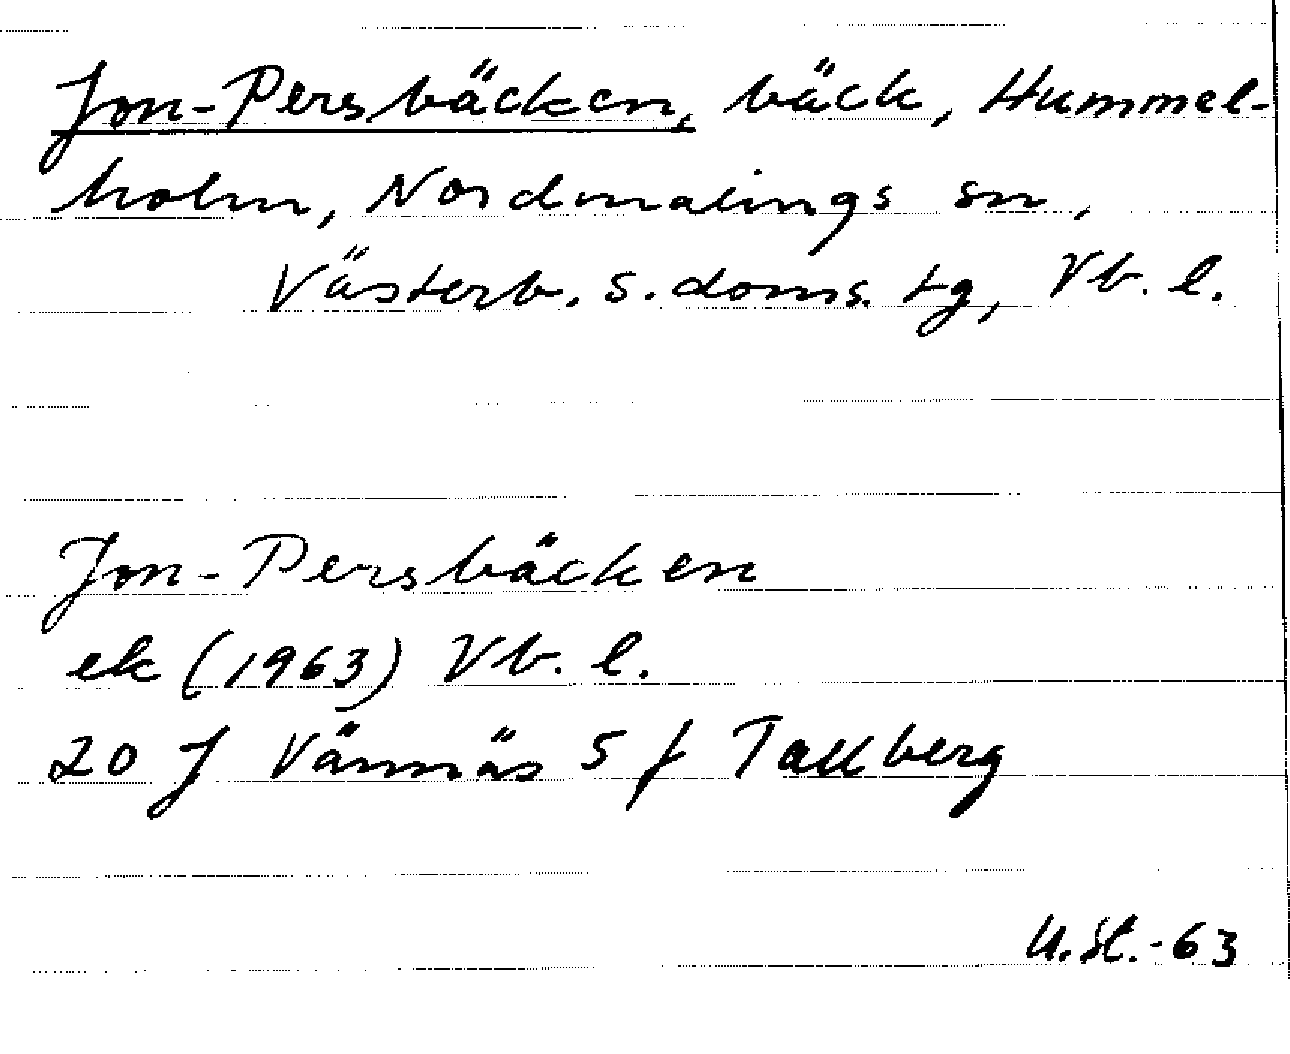 Jon-Persbäcken, bäck, Hummel-
holm, Nordmalings sn,
Västerb. s. doms. tg, Vb. l.
Jon-Persbäcken
ek (1963) Vb. l.
20 J Vännäs 5 f Tallberg
U. St. -63